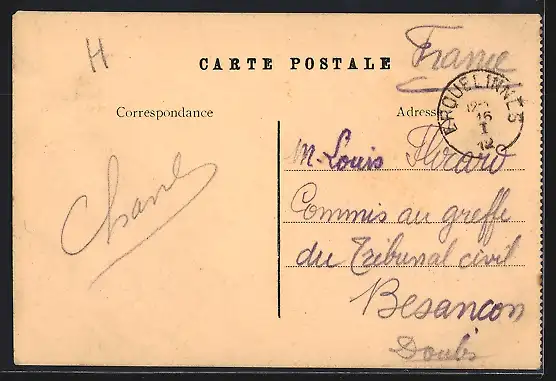 H
CARTE POSTALE
France
Correspondance
Adresse
ERQUELINNES
16
I
12
M. Louis
Commis au greffe
du Tribunal civil
Besançon
Doubs